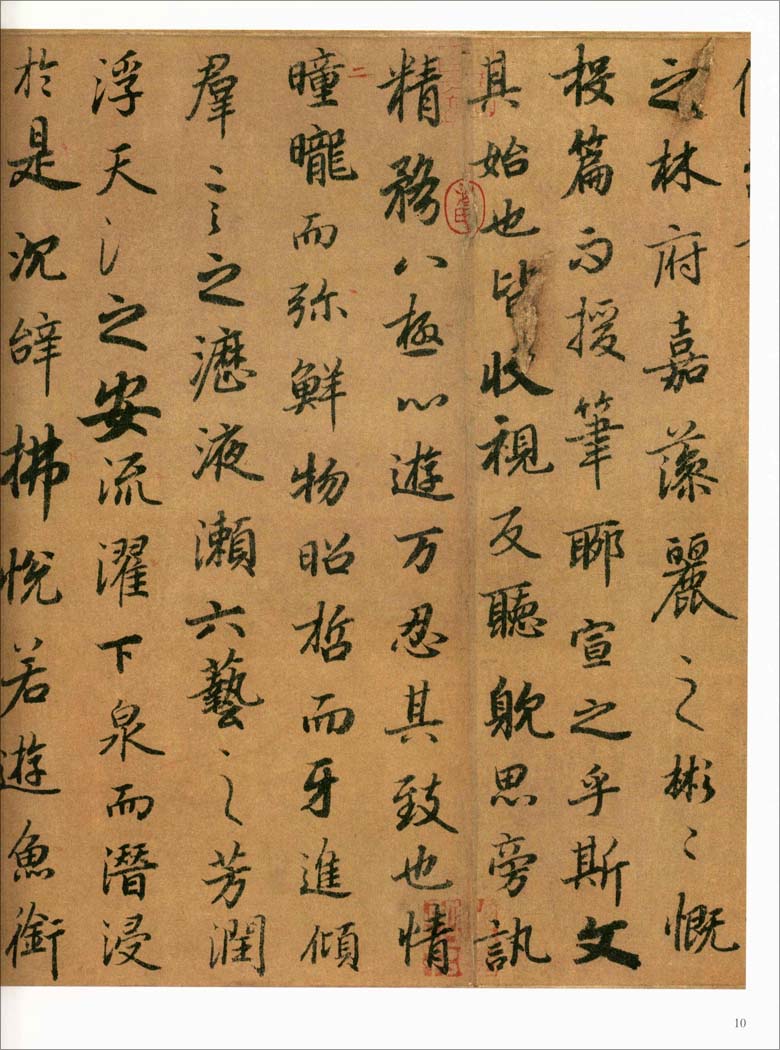 之林府嘉藻麗之彬〻慨
投篇而援筆聊宣之乎斯文
其始也皆收視反聽躭思旁訊
精務八極心遊万忍其致也情
曈曨而弥鮮物昭晢而牙進傾
羣言之瀝液瀨六藝之芳潤
浮天之安流濯下泉而潛浸
於是沉辝拂悅若遊魚銜
10